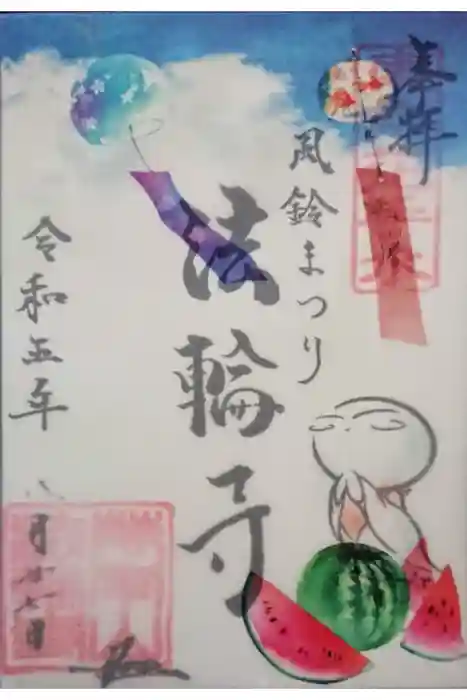 奉拝
風鈴まつり
法輪寺
令和五年
八月廿七日